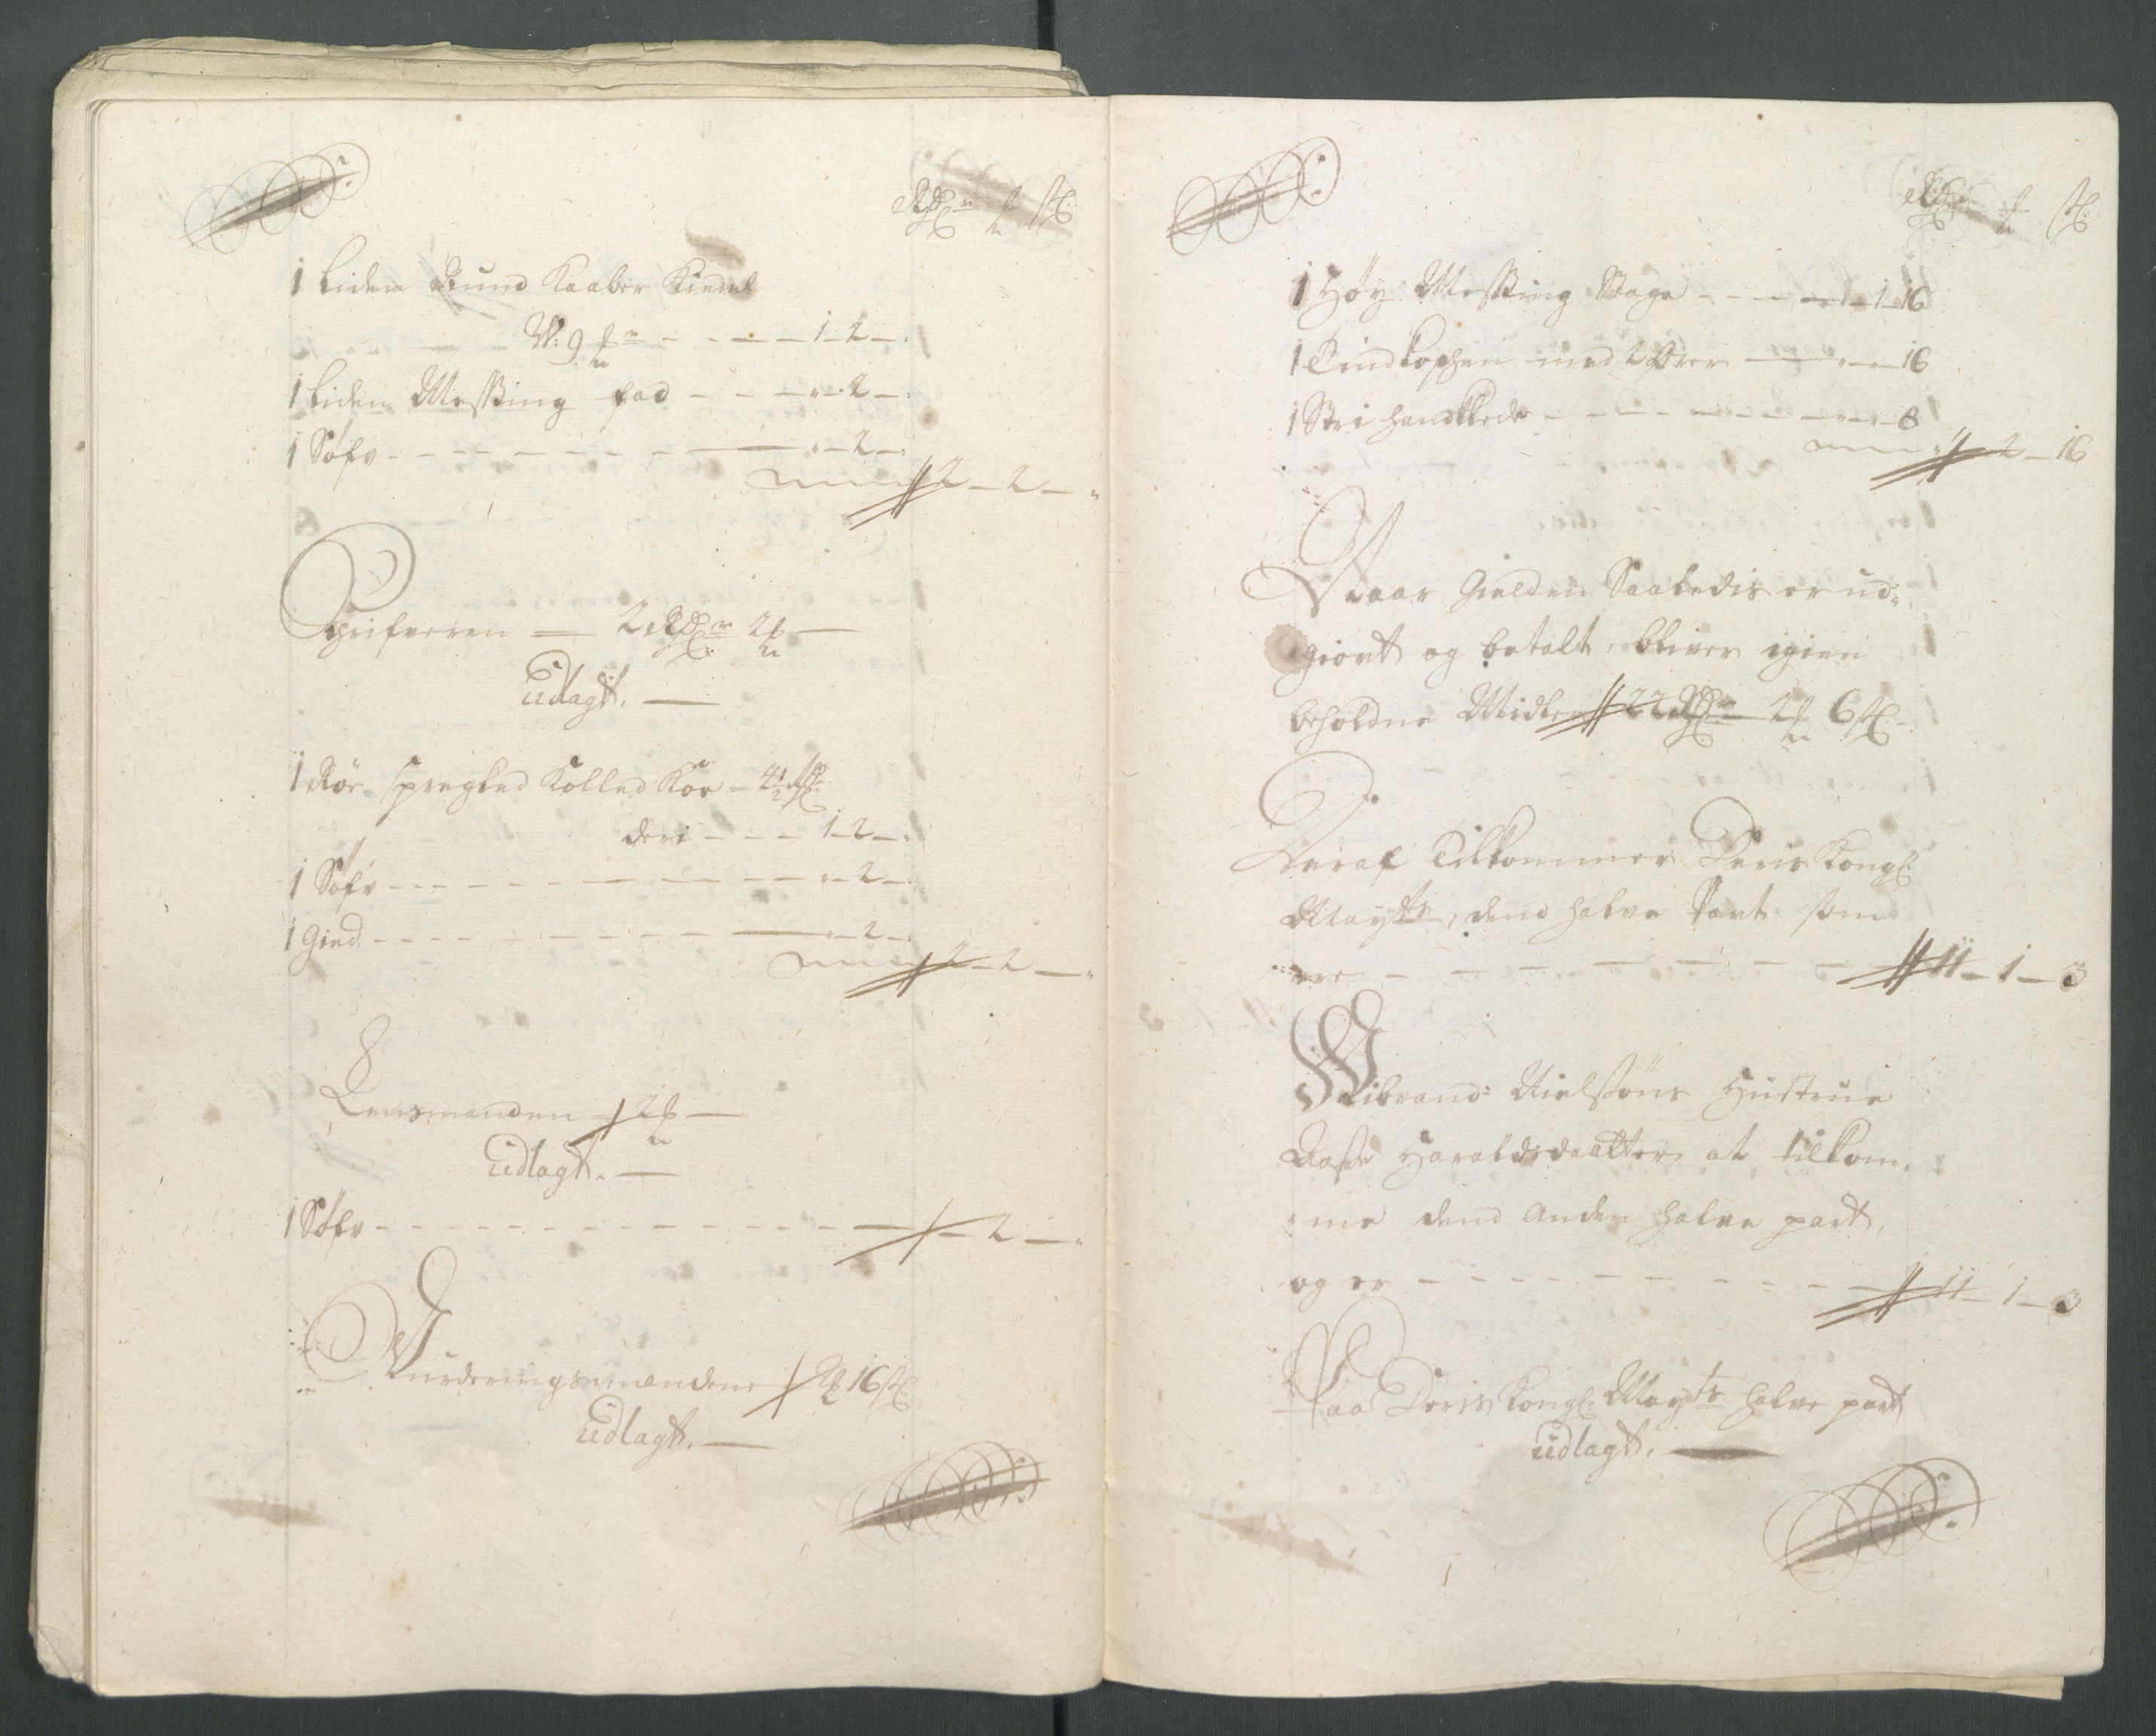 Rdr ⅌ ß
1 Liden Rund Kaaber Kiedel
W: 9 ⅌ - - - 1 - 2 - "
1 Liden Messing fad - - - " - 2 - "
1 Søfv - - - - " - 2 - "
2 - 2 - "
Schrifveren — 2 Rdr 2
udlagt. —
1 Rør Spregled Kolled Koe - 4½ Rdr
deri - - - 1 - 2 - "
1 Søfv - - - - " - 2 - "
1 Gied - - - - " - 2 - "
2 - 2 - "
Lensmanden 2 —
udlagt. —
1 Søfv - - - - 2 - "
Wurderingsmændene 2 16 ß
udlagt. —
Rdr ⅌ ß
1 Høy Messing Stage - - - 1 - 16
1 Tindkophen med 2 Ører — " - " - 16
1 Stri Handklede - - - " - " - 8
2 - 16
Naar Gielden Saaledis er ud-
giort og betalt, bliver igien
beholdne Midler 22 Rdr 2 6 ß
Deraf Tilkommer Deris Kongl:
Mayts, dend halve Part som
ere - - - - 11 - 1 - 3
Wibrand Nielsøns Hüstrue
Haraldsdaatter at tilkom-
me dend Anden halve part,
og er - - - - 11 - 1 - 3
Paa Deris Kongl: Mayts halve part
udlagt. —